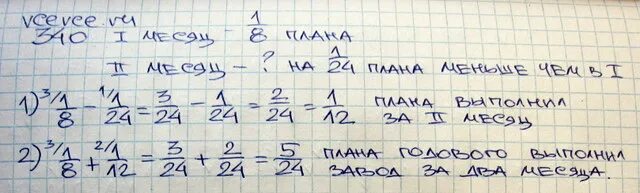 vcevce.ru
340 I месяц - 1/8 плана
II месяц - ? на 1/24 плана меньше чем в I
1) ³/1/8 - ¹/1/24 = 3/24 - 1/24 = 2/24 = 1/12 плана выполнил за II месяц
2) ³/1/8 + ²/1/12 = 3/24 + 2/24 = 5/24 плана годового выполнил завод за два месяца.